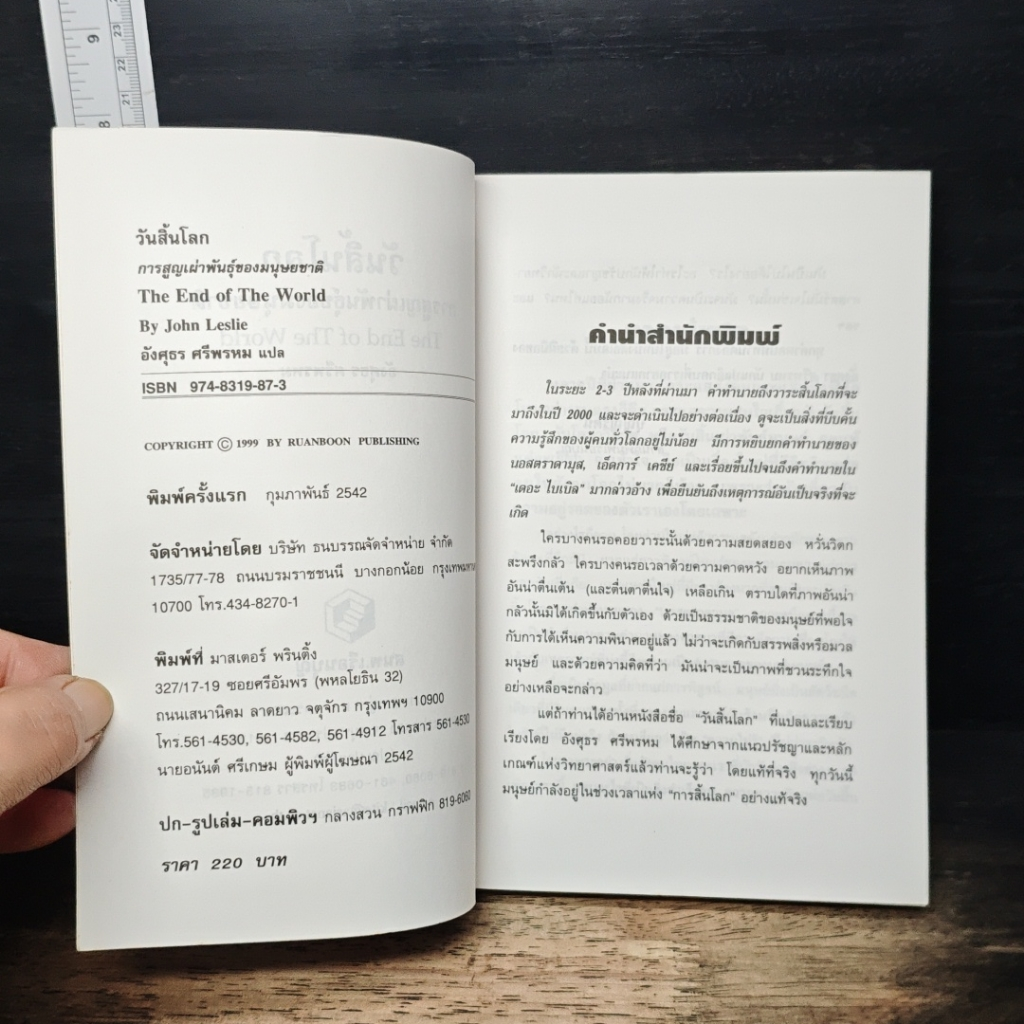 9
23
22
21
8
วันสิ้นโลก
การสูญเผ่าพันธุ์ของมนุษยชาติ
The End of The World
By John Leslie
อังศุธร ศรีพรหม แปล
ISBN 974-8319-87-3
COPYRIGHT © 1999 BY RUANBOON PUBLISHING
พิมพ์ครั้งแรก กุมภาพันธ์ 2542
จัดจำหน่ายโดย บริษัท ธนบรรณจัดจำหน่าย จำกัด
1735/77-78 ถนนบรมราชชนนี บางกอกน้อย
10700 โทร.434-8270-1
พิมพ์ที่ มาสเตอร์ พรินติ้ง
327/17-19 ซอยศรีอัมพร (พหลโยธิน 32)
ถนนเสนานิคม ลาดยาว จตุจักร กรุงเทพฯ 10900
โทร.561-4530, 561-4582, 561-4912 โทรสาร 561-4530
นายอนันต์ ศรีเกษม ผู้พิมพ์ผู้โฆษณา 2542
ปก-รูปเล่ม-คอมพิวฯ กลางสวน กราฟฟิก 819-6060
ราคา 220 บาท
คำนำสำนักพิมพ์
ในระยะ 2-3 ปีหลังที่ผ่านมา คำทำนายถึงวาระสิ้นโลกที่จะ
มาถึงในปี 2000 และจะดำเนินไปอย่างต่อเนื่อง ดูจะเป็นสิ่งที่บีบคั้น
ความรู้สึกของผู้คนทั่วโลกอยู่ไม่น้อย มีการหยิบยกคำทำนายของ
นอสตราดามุส, เอ็ดการ์ เคซีย์ และเรื่อยขึ้นไปจนถึงคำทำนายใน
"เดอะ ไบเบิล" มากล่าวอ้าง เพื่อยืนยันถึงเหตุการณ์อันเป็นจริงที่จะ
เกิด
ใครบางคนรอคอยวาระนั้นด้วยความสยดสยอง หวั่นวิตก
สะพรึงกลัว ใครบางคนรอเวลาด้วยความคาดหวัง อยากเห็นภาพ
อันน่าตื่นเต้น (และตื่นตาตื่นใจ) เหลือเกิน ตราบใดที่ภาพอันน่า
กลัวนั้นมิได้เกิดขึ้นกับตัวเอง ด้วยเป็นธรรมชาติของมนุษย์ที่พอใจ
กับการได้เห็นความพินาศอยู่แล้ว ไม่ว่าจะเกิดกับสรรพสิ่งหรือมวล
มนุษย์ และด้วยความคิดที่ว่า มันน่าจะเป็นภาพที่ชวนระทึกใจ
อย่างเหลือจะกล่าว
แต่ถ้าท่านได้อ่านหนังสือชื่อ "วันสิ้นโลก" ที่แปลและเรียบ
เรียงโดย อังศุธร ศรีพรหม ได้ศึกษาจากแนวปรัชญาและหลัก
เกณฑ์แห่งวิทยาศาสตร์แล้วท่านจะรู้ว่า โดยแท้ที่จริง ทุกวันนี้
มนุษย์กำลังอยู่ในช่วงเวลาแห่ง "การสิ้นโลก" อย่างแท้จริง